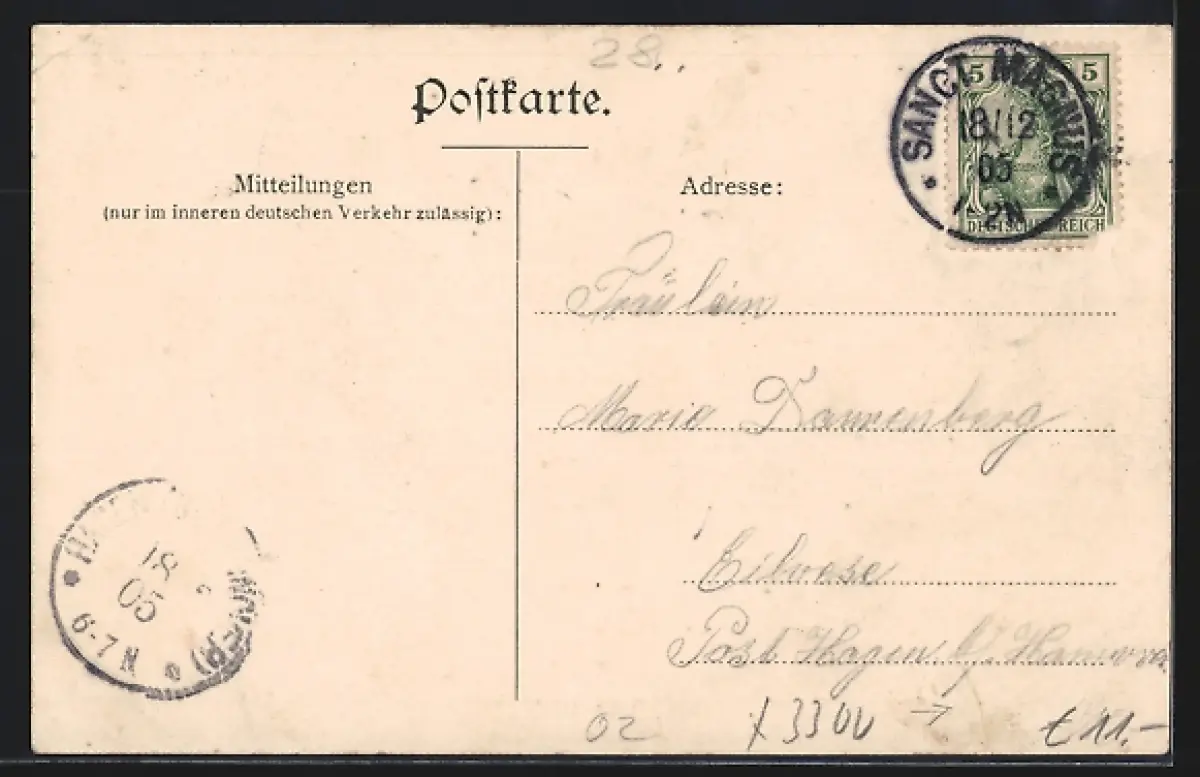 28..
Postkarte.
SANCT MAGNUS
5 5
8/12
05
2N
DEUTSCHES REICH
Mitteilungen
(nur im inneren deutschen Verkehr zulässig):
Adresse:
Fräulein
Marie Dannenberg
Eilvese
Post Hagen b/ Hannover
6-7 N
02
x 3300 → € 11.-